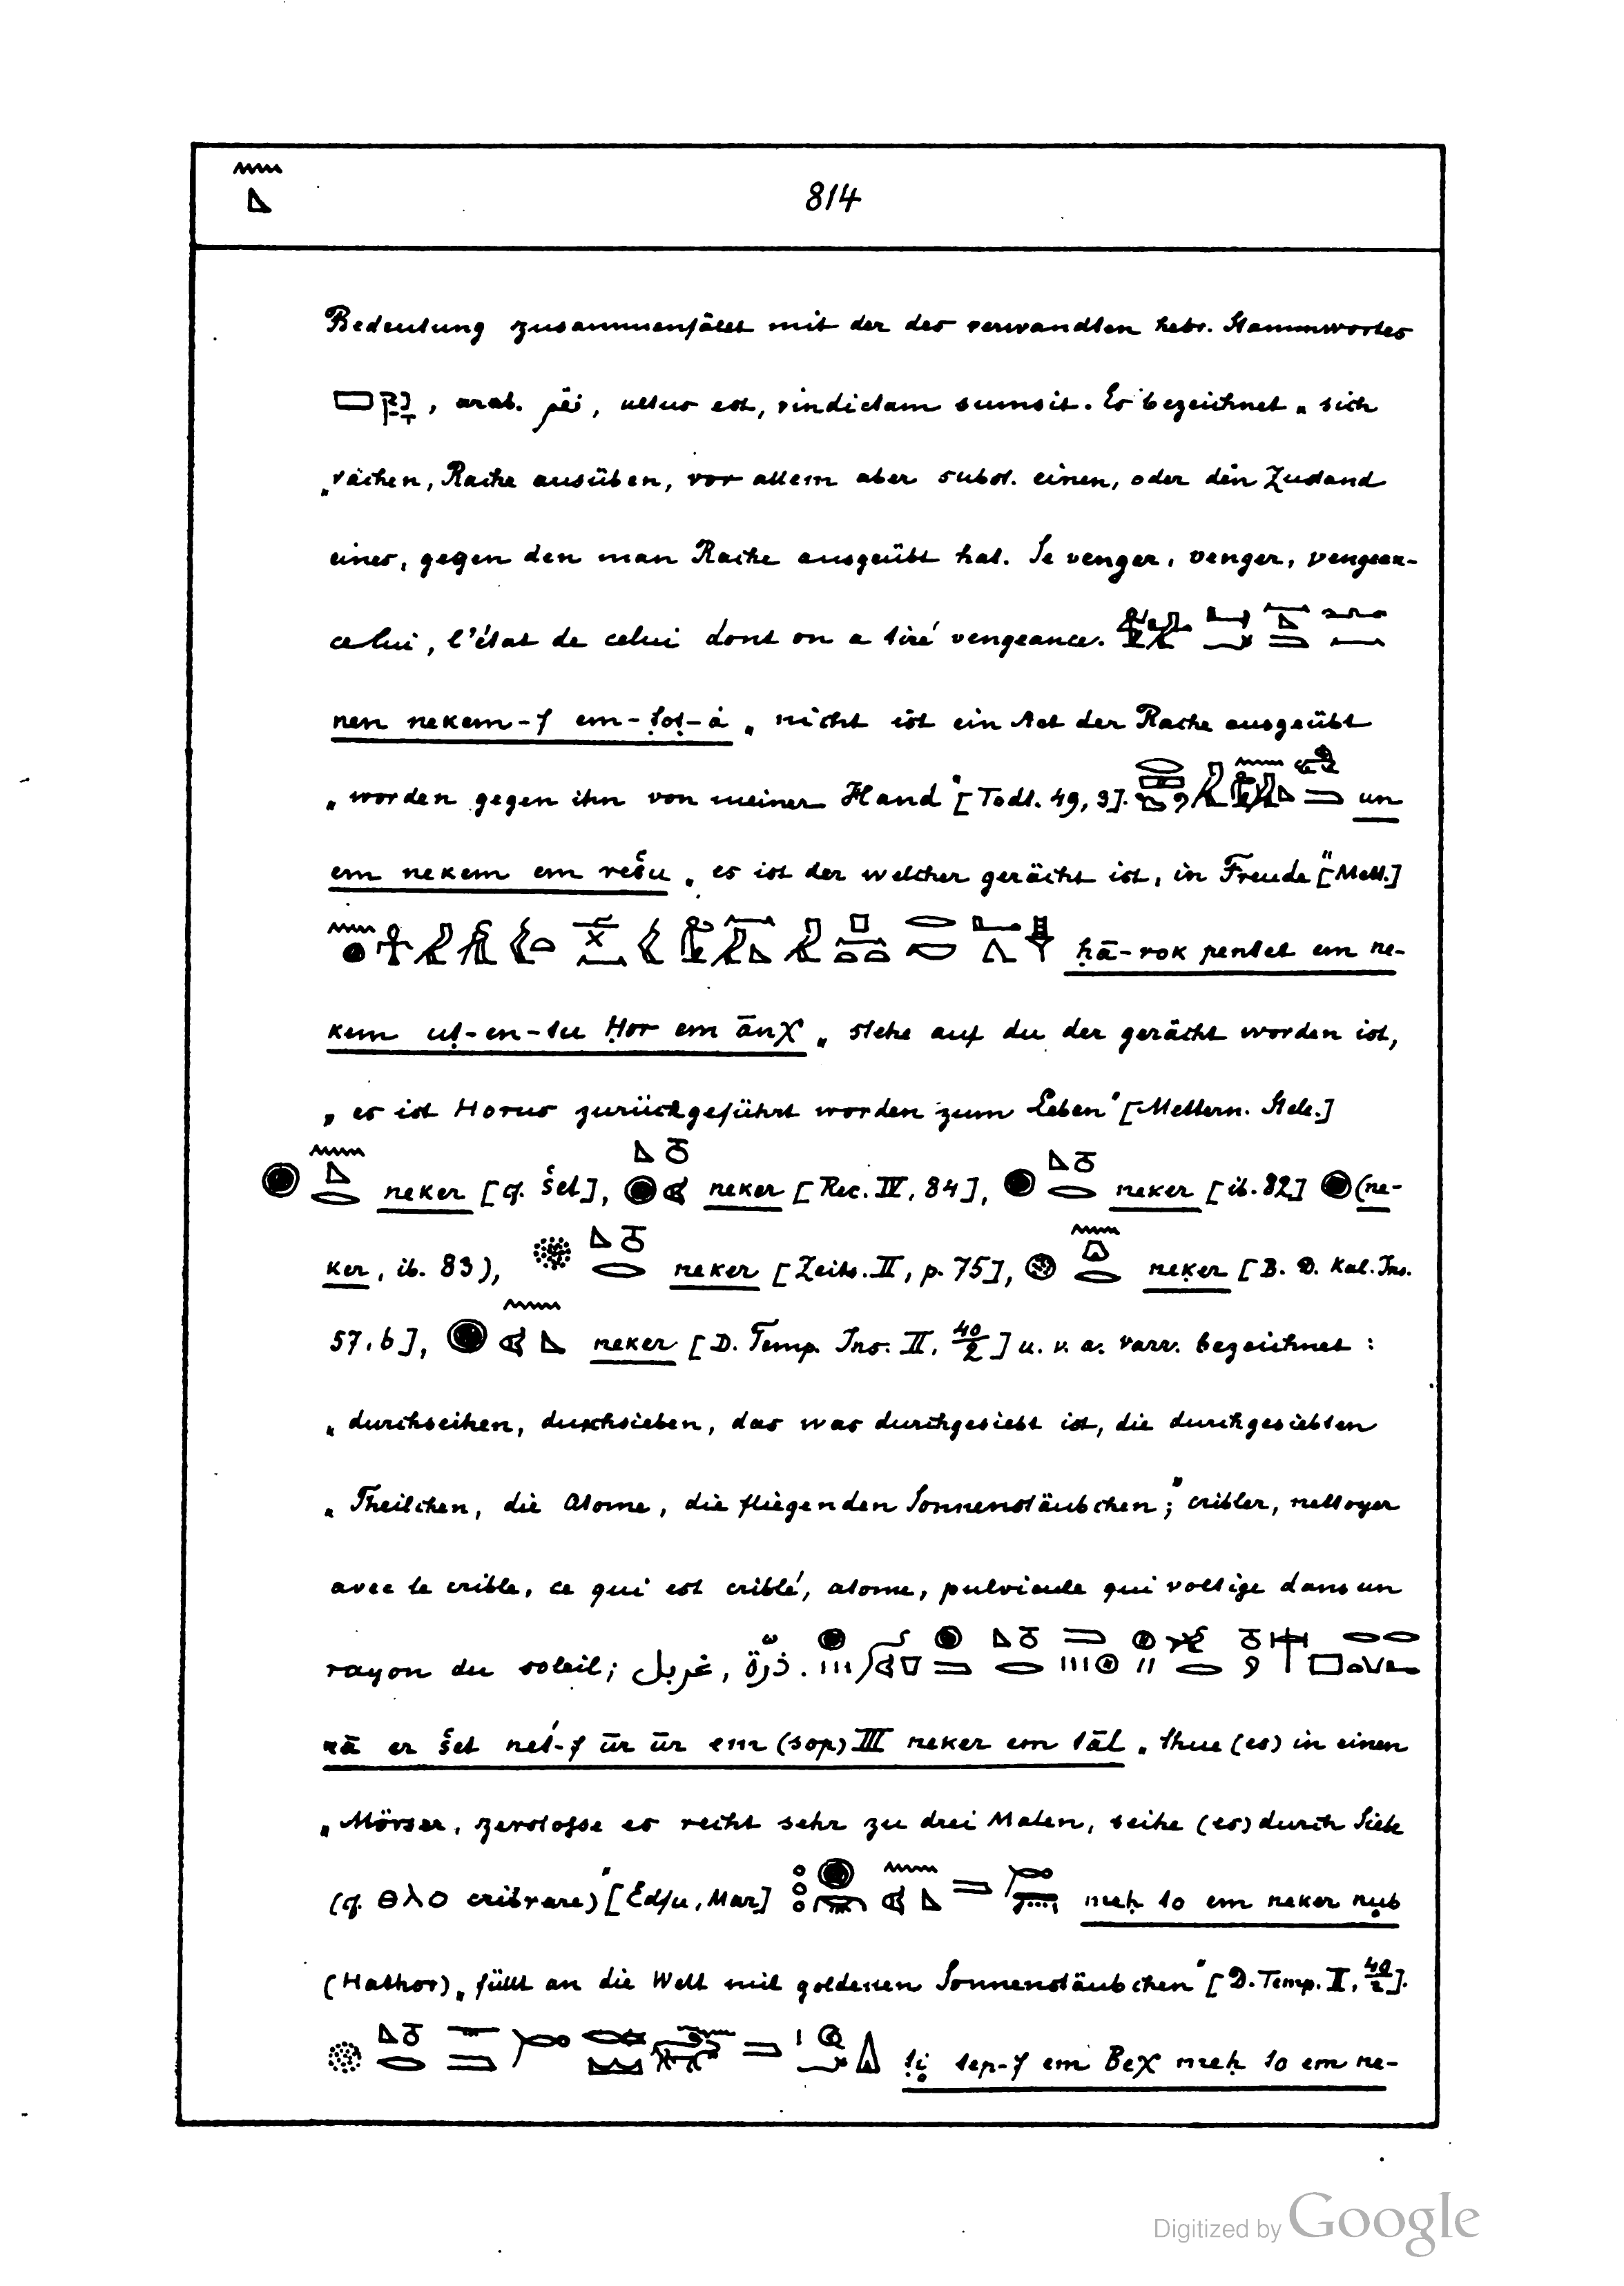 814
Bedeutung zusammenfällt mit der des verwandten hebr. Stammwortes
נקם, arab. نقم, ultus est, vindictam sumsit. Es bezeichnet „sich
„rächen, Rache ausüben, vor allem aber subst. einen, oder den Zustand
eines, gegen den man Rache ausgeübt hat. Se venger, venger, vengean-
celui, l'état de celui dont on a tiré vengeance.
nen nekem-f em-ṭoṭ-à „nicht ist ein Act der Rache ausgeübt
„worden gegen ihn von meiner Hand" [Todt. 49, 3]. un
em nekem em rešu „es ist der welcher gerächt ist, in Freude" [Mett.]
ḥā-rok pentet em ne-
kem uṭ-en-tu Ḥor em ānχ „stehe auf du der gerächt worden ist,
„es ist Horus zurückgeführt worden zum Leben" [Mettern. Stele.]
neker [cf. šet], neker [Rec. IV, 84], neker [ib. 82] (ne-
ker, ib. 83), neker [Zeits. II, p. 75], neker [B. D. Kal. Ins.
57. b], neker [D. Temp. Ins. II, 40/2] u. v. a. varr. bezeichnet :
„durchseihen, durchsieben, das was durchgesiebt ist, die durchgesiebten
„Theilchen, die Atome, die fliegenden Sonnenstäubchen;" cribler, nettoyer
avec le crible, ce qui est criblé, atome, pulvicule qui voltige dans un
rayon du soleil; غربل, ذرّة.
er šet neť-f ūr ūr em (sop) III neker em tāt „thue (es) in einen
„Mörser, zerstosse es recht sehr zu drei Malen, seihe (es) durch Siebe
(cf. ⲑⲗⲟ cribrare)" [Edfu, Mar.] meḥ to em neker nub
(Hathor) „füllt an die Welt mit goldenen Sonnenstäubchen" [D. Temp. II, 40/2].
ṭi tep-f em Beχ meḥ to em ne-
Digitized by Google